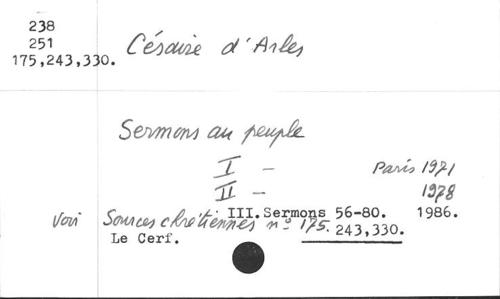 238
251
175,243,330.
Césaire d'Arles
Sermons au peuple
I – Paris 1971
II – 1978
III. Sermons 56-80. 1986.
Voir Sources chrétiennes n° 175. 243,330.
Le Cerf.